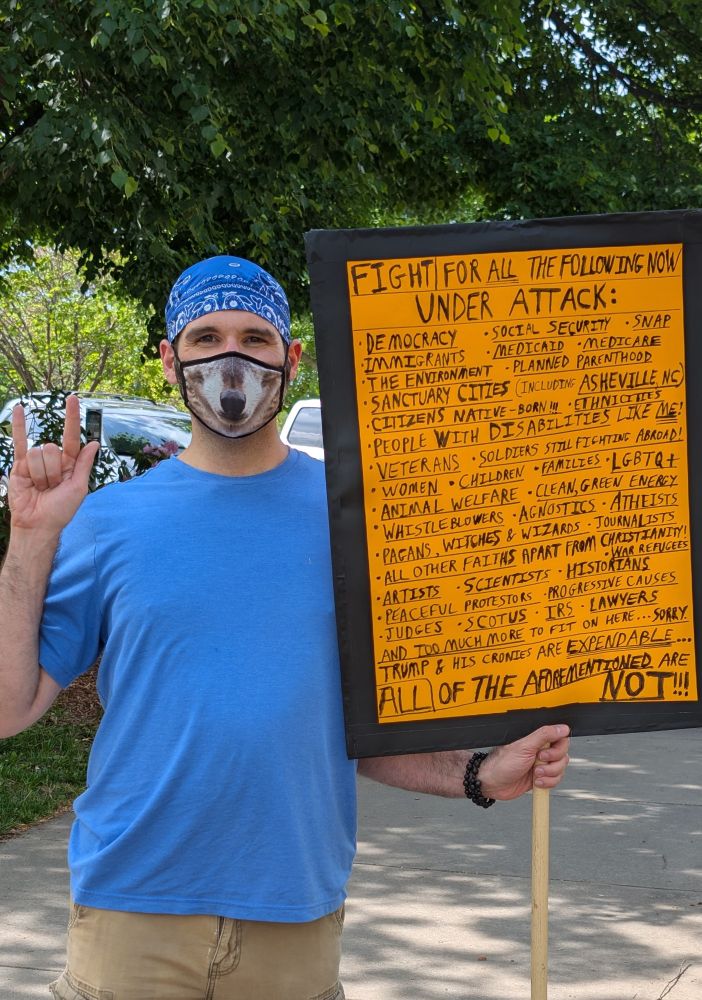 FIGHT FOR ALL THE FOLLOWING NOW
UNDER ATTACK:
• DEMOCRACY • SOCIAL SECURITY • SNAP
IMMIGRANTS • MEDICAID • MEDICARE
• THE ENVIRONMENT • PLANNED PARENTHOOD
• SANCTUARY CITIES (INCLUDING ASHEVILLE, NC)
CITIZENS NATIVE-BORN!!! • ETHNICITIES
PEOPLE WITH DISABILITIES LIKE ME!
• VETERANS • SOLDIERS STILL FIGHTING ABROAD!
• WOMEN • CHILDREN • FAMILIES • LGBTQ+
• ANIMAL WELFARE • CLEAN, GREEN ENERGY
• WHISTLEBLOWERS • AGNOSTICS • ATHEISTS
• PAGANS, WITCHES & WIZARDS • JOURNALISTS
• ALL OTHER FAITHS APART FROM CHRISTIANITY!
• ARTISTS • SCIENTISTS • HISTORIANS • WAR REFUGEES
• PEACEFUL PROTESTORS • PROGRESSIVE CAUSES
• JUDGES • SCOTUS • IRS • LAWYERS
AND TOO MUCH MORE TO FIT ON HERE... SORRY
TRUMP & HIS CRONIES ARE EXPENDABLE...
ALL OF THE AFOREMENTIONED ARE
NOT!!!